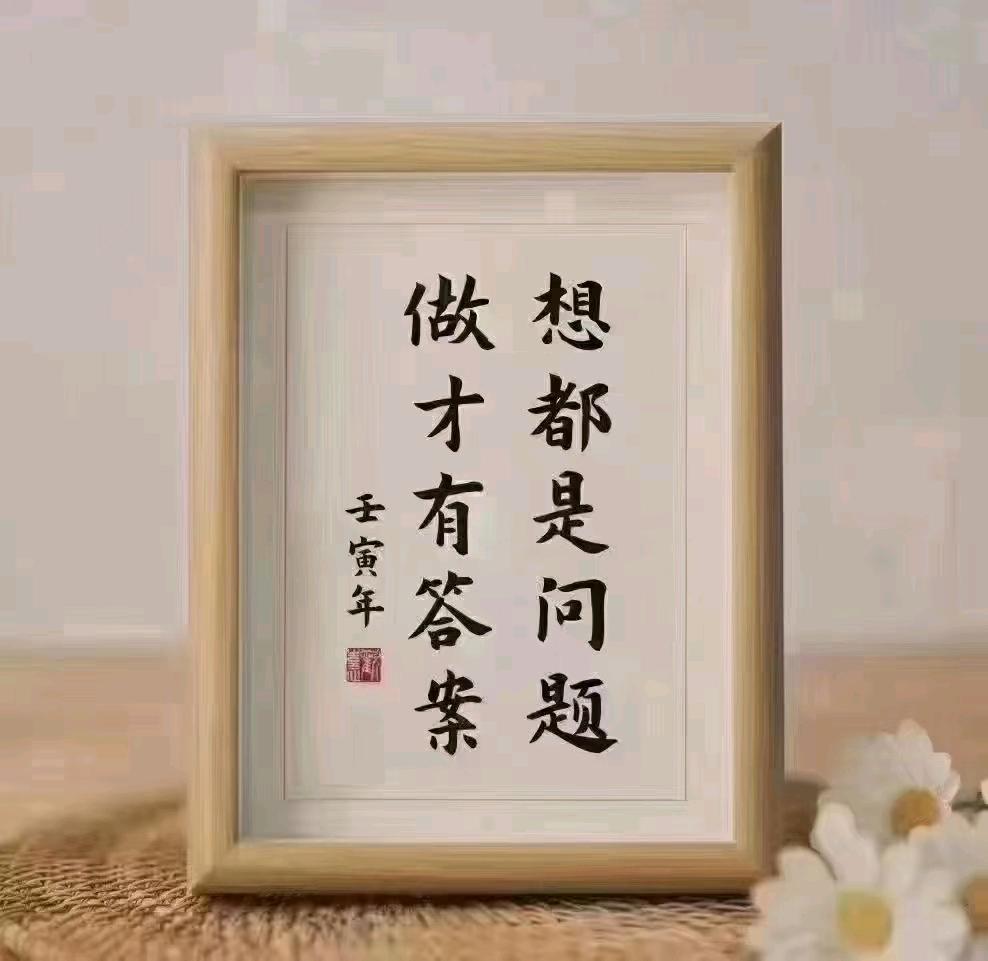 想都是问题
做才有答案
壬寅年